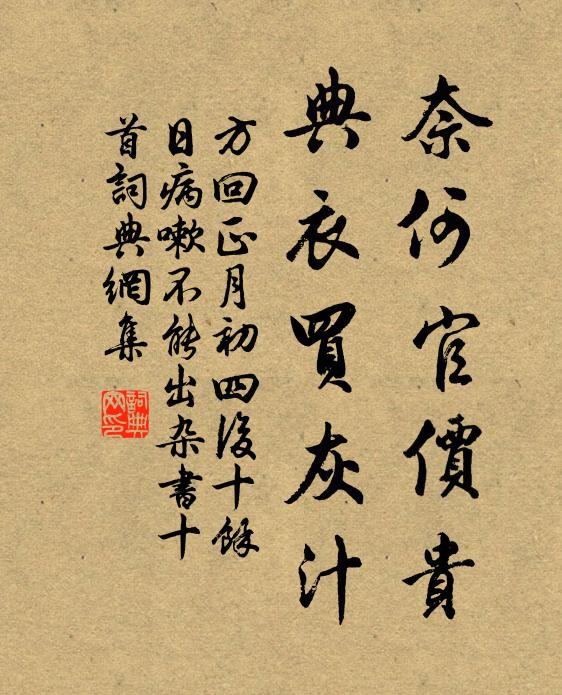 奈何官價貴
典衣買灰汁
方回正月初四後十餘
日病嗽不能出杂書十
首詞典網集
詞典
网印